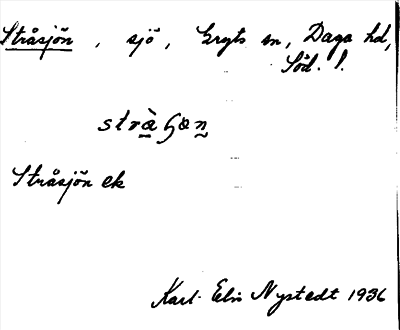 Stråsjön, sjö, Gryts sn, Daga hd,
Söd. l.
Stråsjön ek
Karl-Elis Nystedt 1936